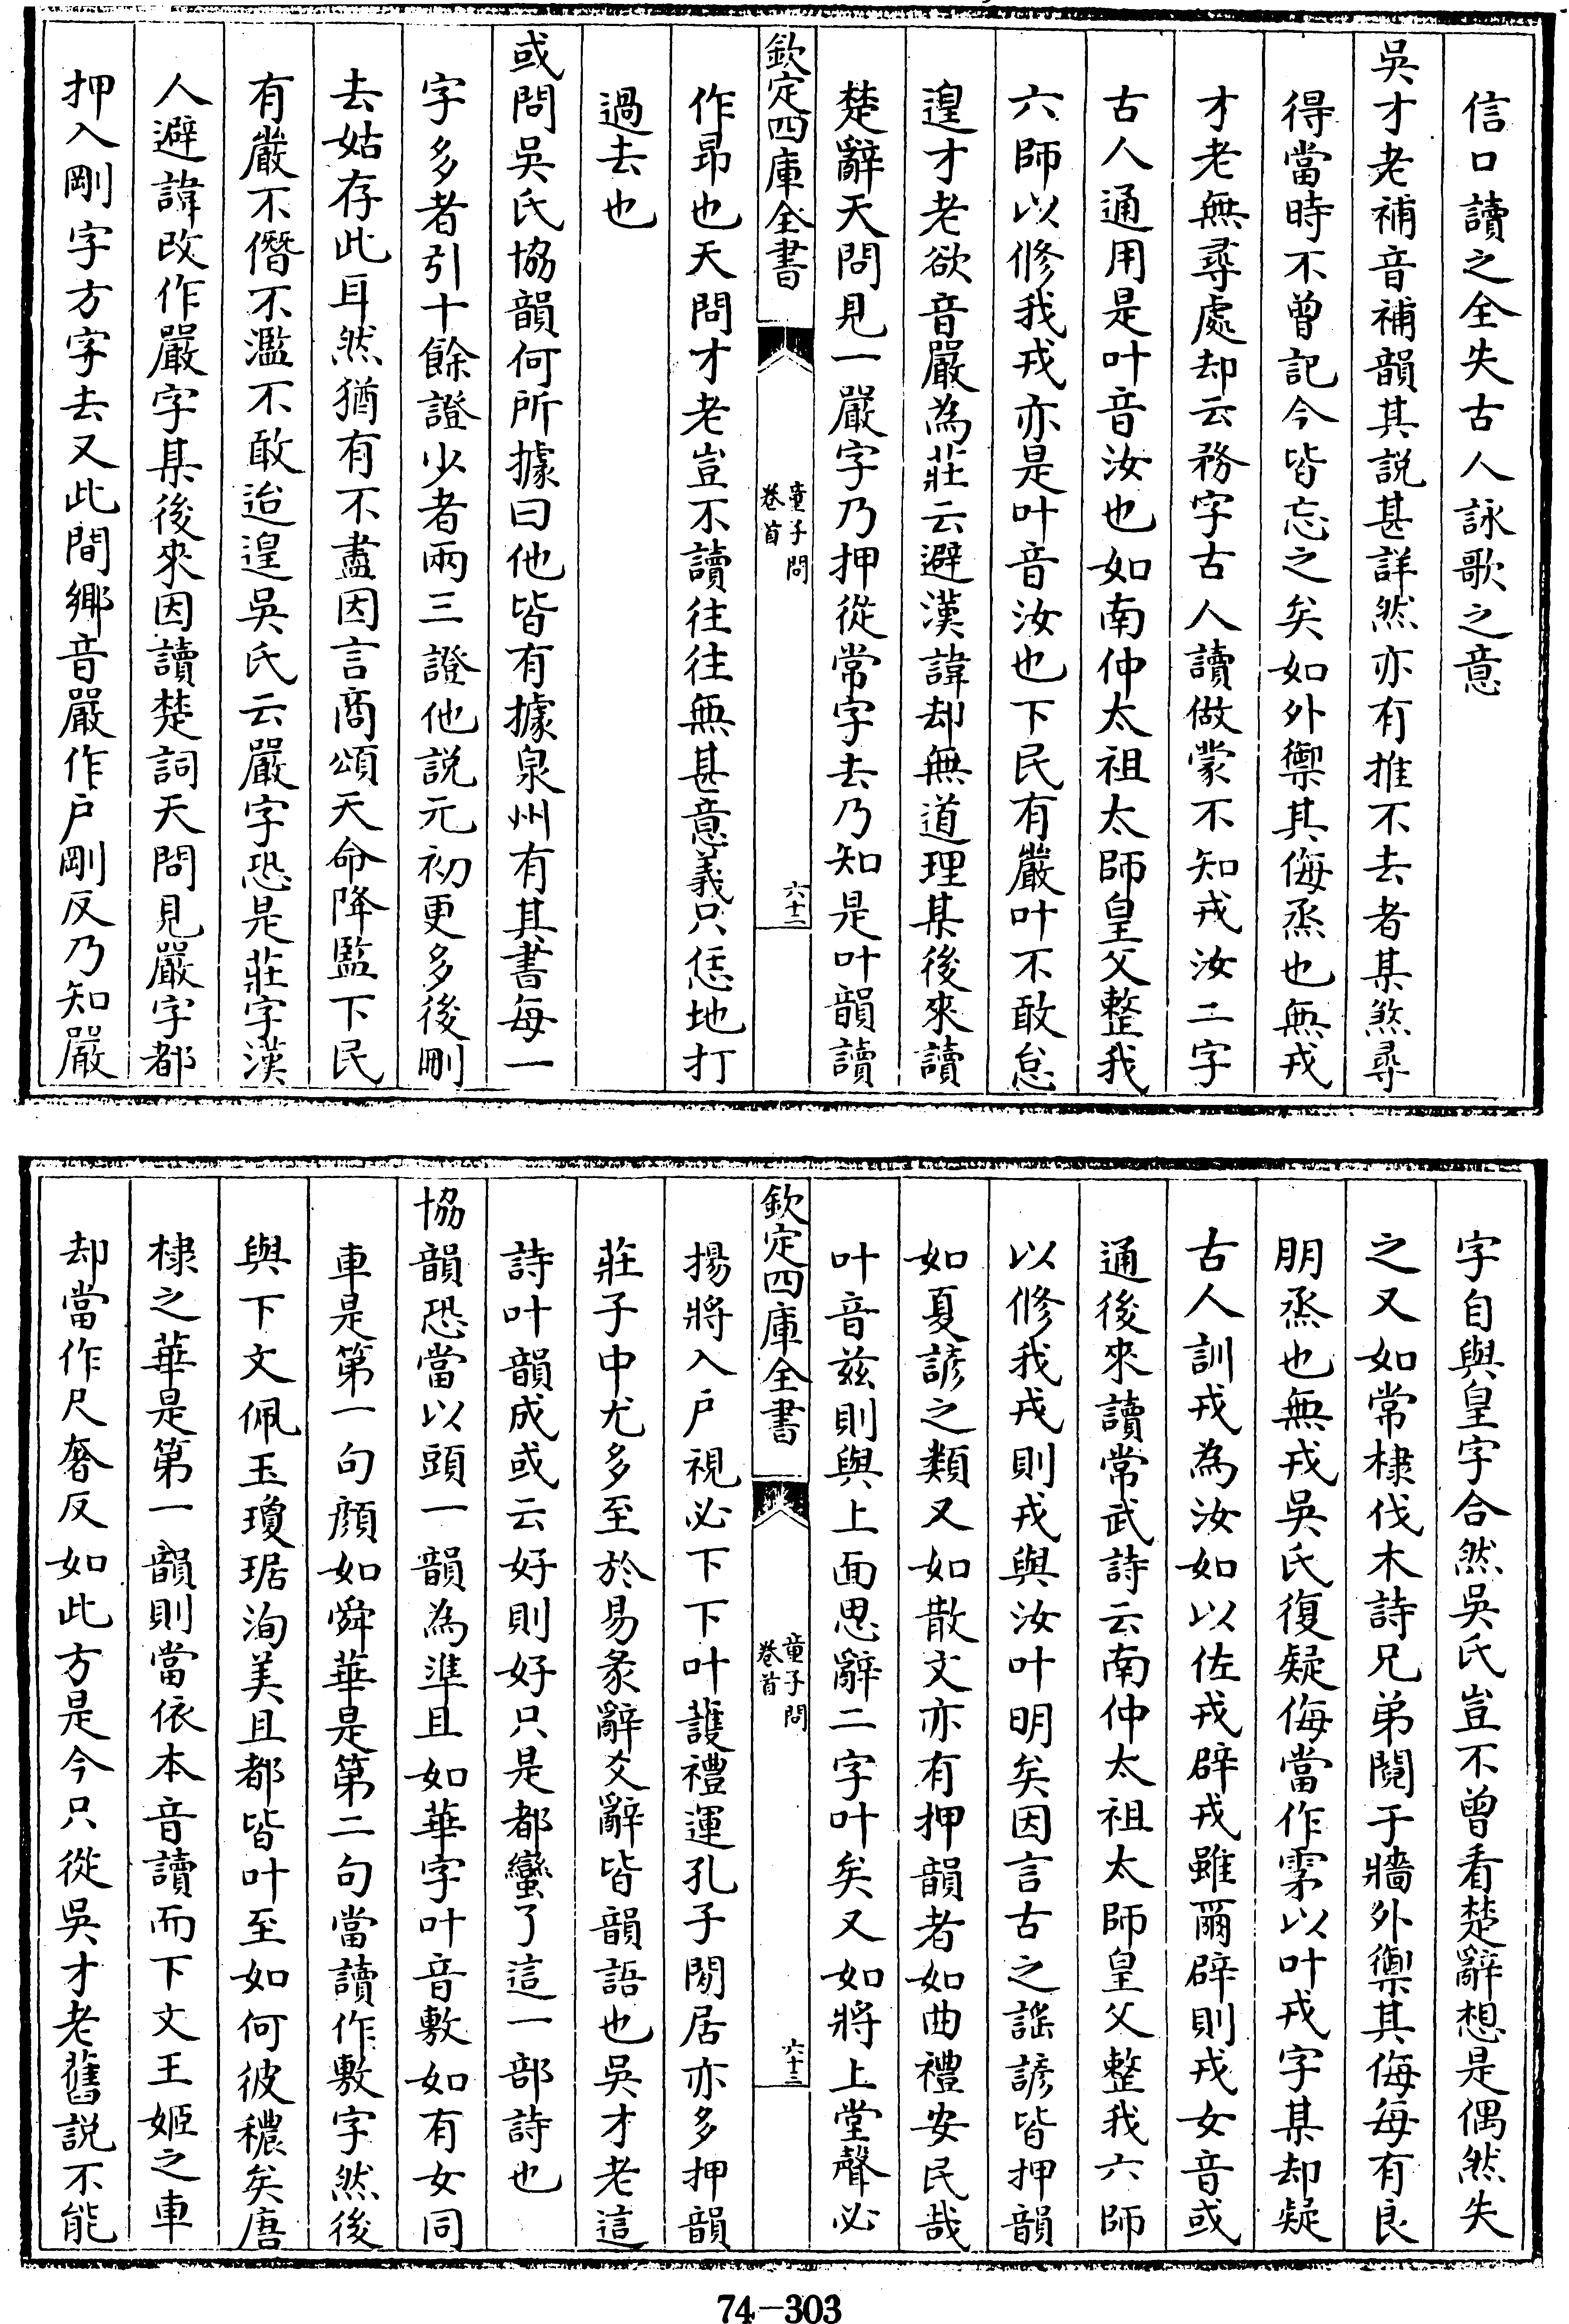 信口讀之全失古人詠歌之意
吳才老補音補韻其説甚詳然亦有推不去者某煞尋
得當時不曾記今皆忘之矣如外禦其侮烝也無戎
才老無尋處却云務字古人讀做蒙不知戎汝二字
古人通用是叶音汝也如南仲太祖太師皇父整我
六師以修我戎亦是叶音汝也下民有嚴叶不敢怠
遑才老欲音嚴為莊云避漢諱却無道理某後來讀
楚辭天問見一嚴字乃押從常字去乃知是叶韻讀
欽定四庫全書
童子問
卷首
六十二
作昂也天問才老豈不讀往往無甚意義只恁地打
過去也
或問吳氏協韻何所據曰他皆有據泉州有其書每一
字多者引十餘證少者兩三證他説元初更多後刪
去姑存此耳然猶有不盡因言商頌天命降監下民
有嚴不僭不濫不敢迨遑吳氏云嚴字恐是莊字漢
人避諱改作嚴字某後來因讀楚詞天問見嚴字都
押入剛字方字去又此間鄉音嚴作户剛反乃知嚴
字自與皇字合然吳氏豈不曾看楚辭想是偶然失
之又如常棣伐木詩兄弟䦧于牆外禦其侮每有良
朋烝也無戎吳氏復疑侮當作䍘以叶戎字某却疑
古人訓戎為汝如以佐戎辟戎雖爾辟則戎女音或
通後來讀常武詩云南仲太祖太師皇父整我六師
以修我戎則戎與汝叶明矣因言古之謠諺皆押韻
如夏諺之類又如散文亦有押韻者如曲禮安民哉
叶音兹則與上面思辭二字叶矣又如將上堂聲必
欽定四庫全書
童子問
卷首
六十三
揚將入户視必下下叶護禮運孔子閒居亦多押韻
莊子中尤多至於易彖辭爻辭皆韻語也吳才老這
詩叶韻成或云好則好只是都蠻了這一部詩也
協韻恐當以頭一韻為準且如華字叶音敷如有女同
車是第一句顔如舜華是第二句當讀作敷字然後
與下文佩玉瓊琚洵美且都皆叶至如何彼穠矣唐
棣之華是第一韻則當依本音讀而下文王姬之車
却當作尺奢反如此方是今只從吳才老舊説不能
74-303